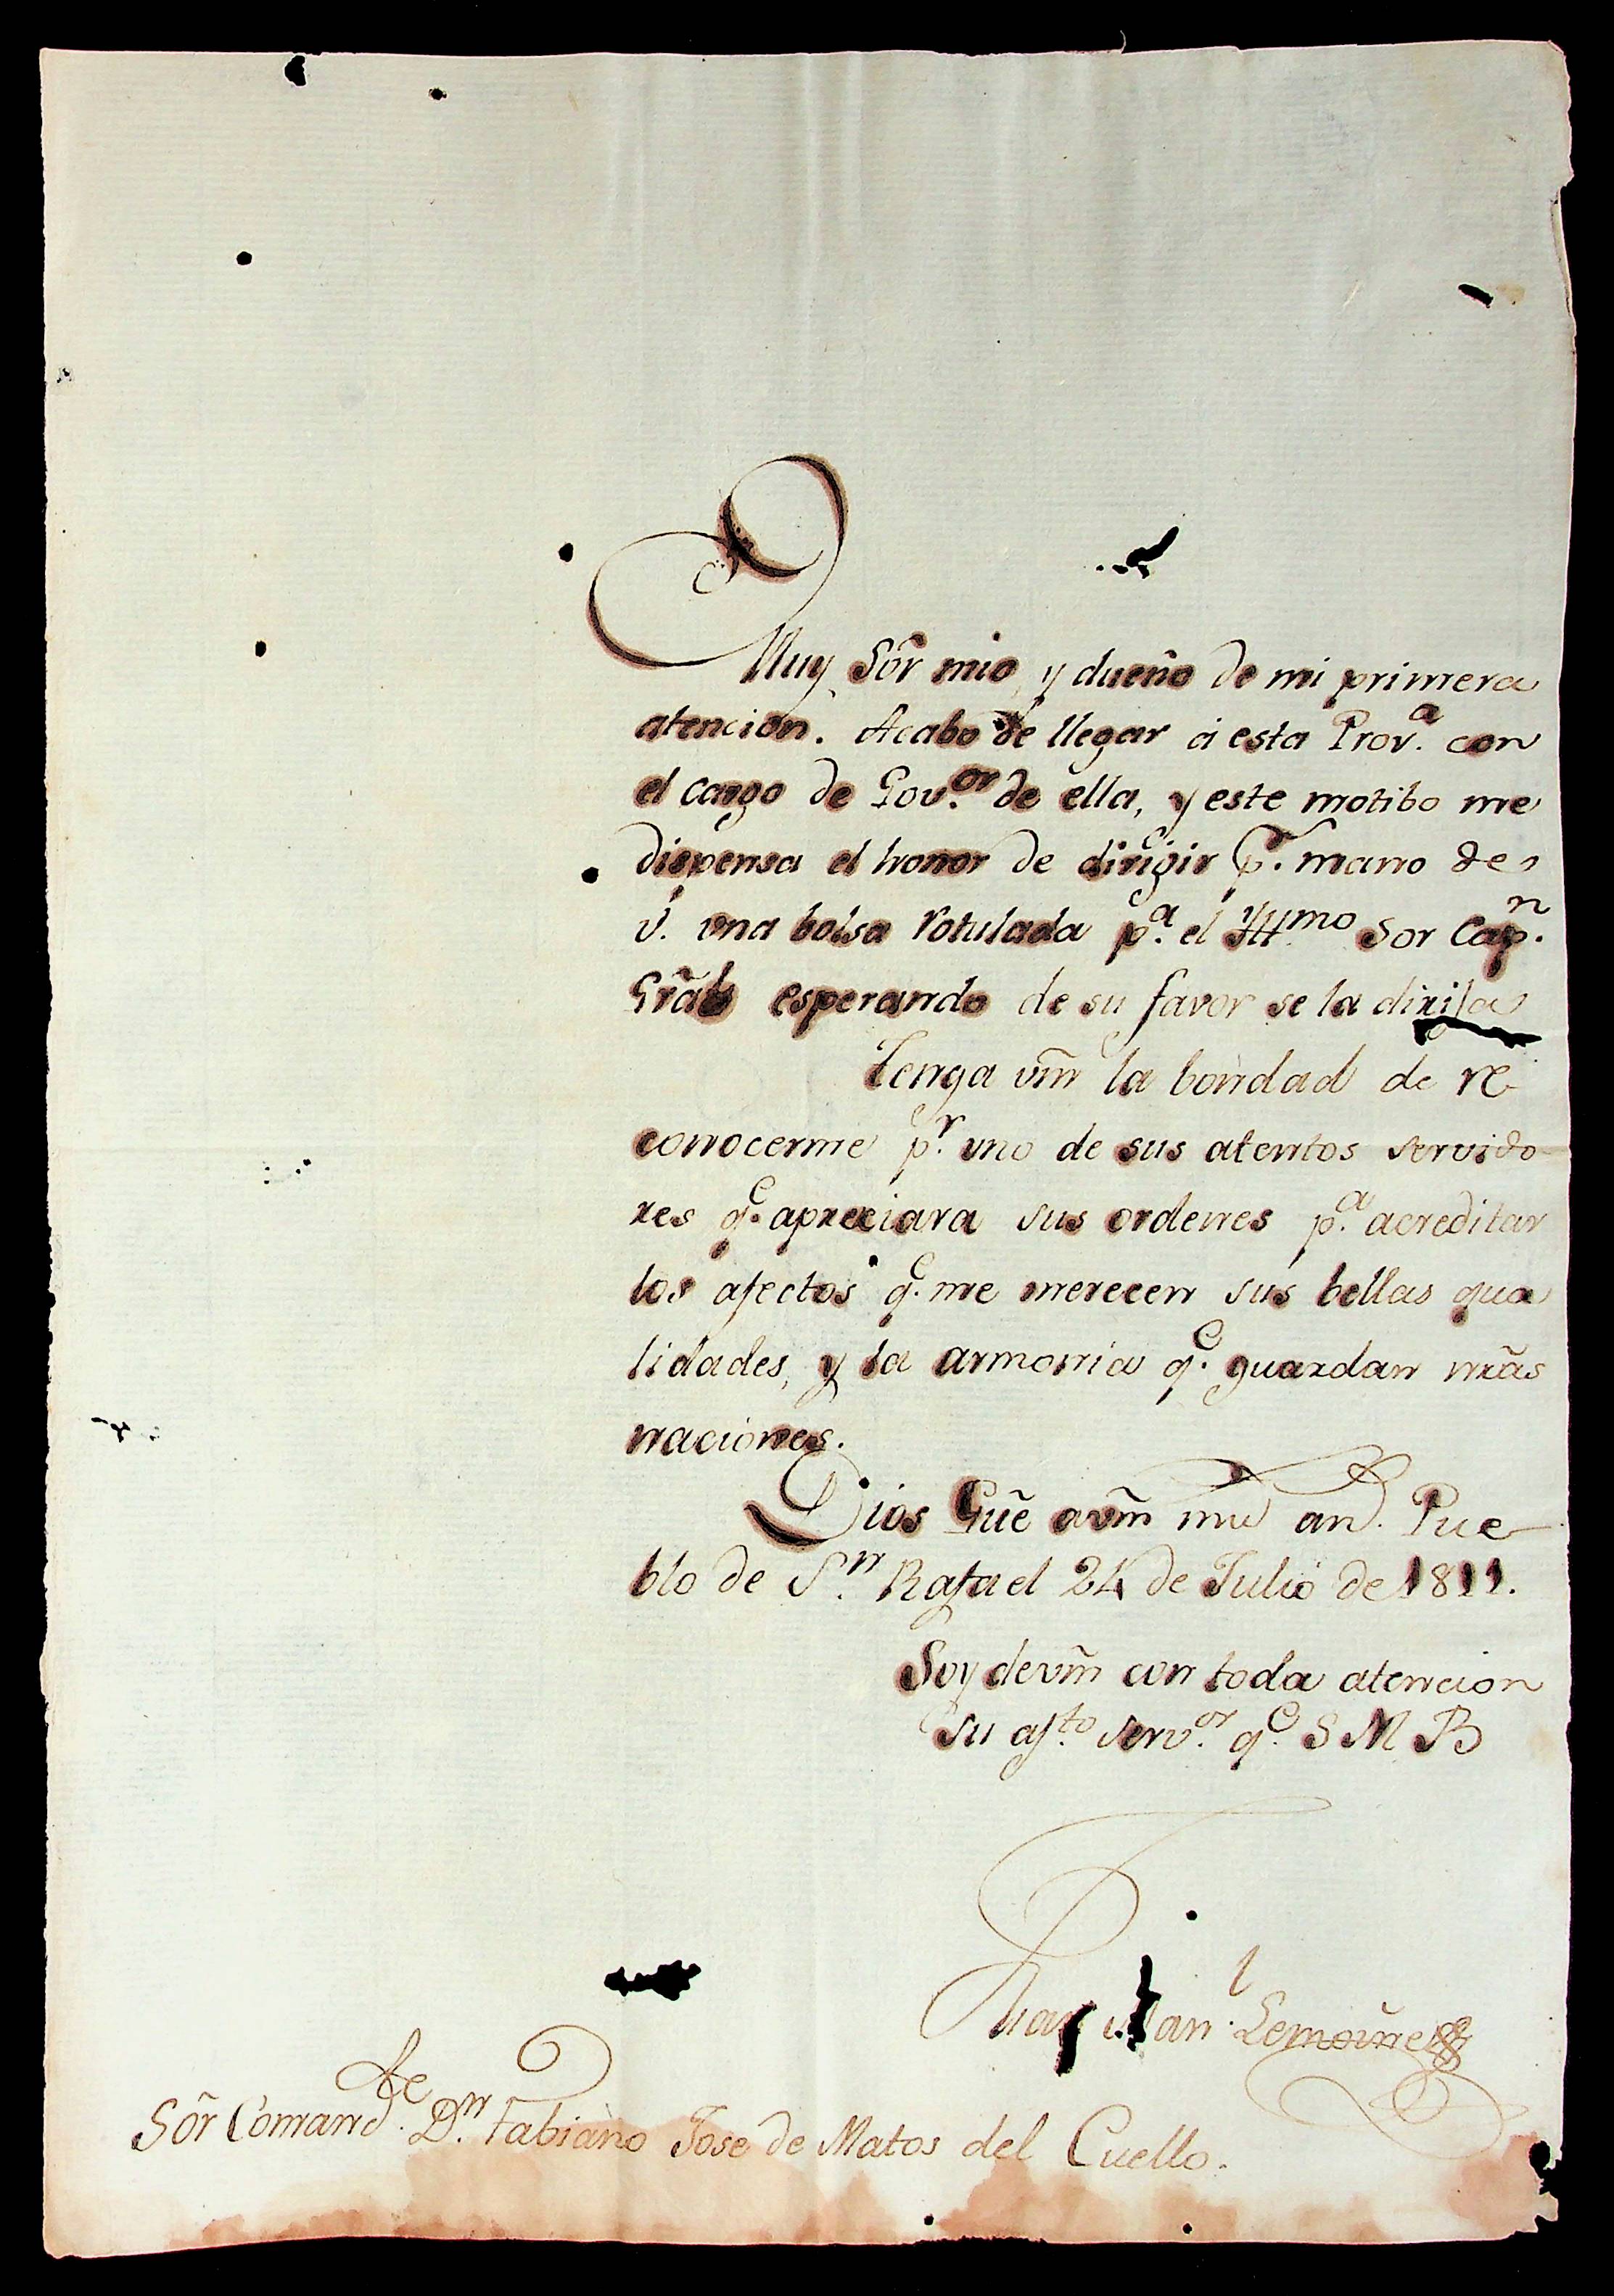 Muy Sõr mio, y dueño de mi primera
atencion. Acabo de llegar á esta Prov.ª con
el cargo de Gov.or de ella, y este motibo me
dispensa el honor de dirigir p.r mano de
V. una bolsa rotulada p.ª el Ill.mo Sor Cap.n
Grãl esperando de su favor se la dirija
Tenga vm̃ la bondad de re-
conocerme p.r uno de sus atentos servido-
res q.e apreciara sus ordenes p.ª acreditar
los afectos q.e me merecen sus bellas qua
lidades, y la armonia q.e guardan nrãs
naciones.
Dios Gũe avm̃ m.s an.s Pue-
blo de S.n Rafael 24 de Julio de 1811.
Soy devm̃ con toda atencion
su af.to serv.or q.e S M B
Man.l Lemoine
Sõr Comand.te D.n Fabiano Jose de Matos del Cuello.